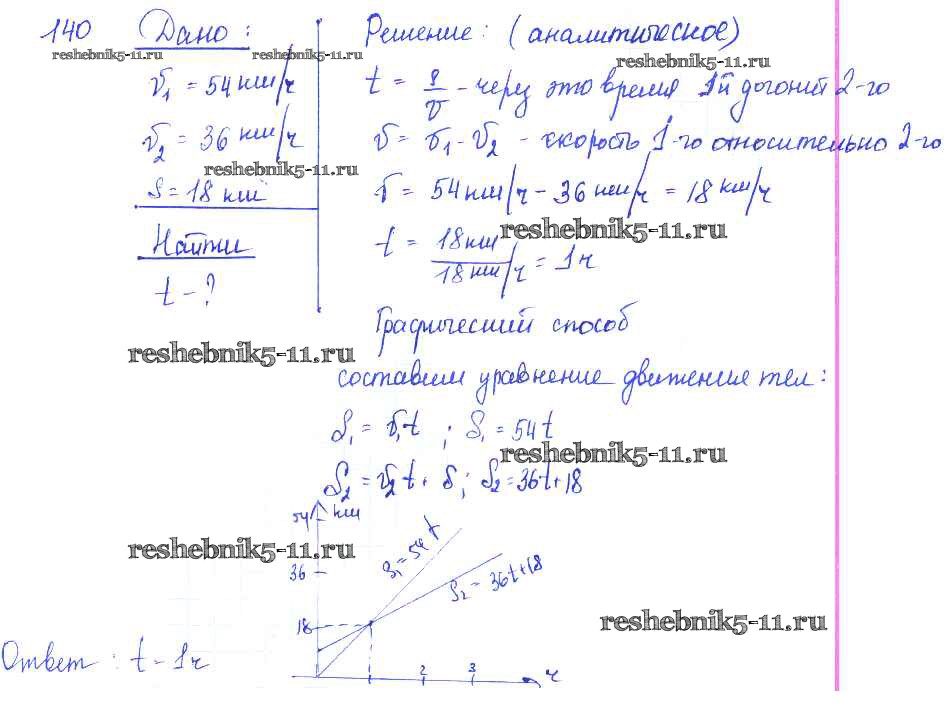 140 Дано:
reshebnik5-11.ru
reshebnik5-11.ru
v₁ = 54 км/ч
v₂ = 36 км/ч
reshebnik5-11.ru
S = 18 км
Найти
t - ?
Решение: (аналитическое)
reshebnik5-11.ru
t = S/v - через это время 1й догонит 2-го
v = v₁ - v₂ - скорость 1-го относительно 2-го
v = 54 км/ч - 36 км/ч = 18 км/ч
reshebnik5-11.ru
t = 18 км / 18 км/ч = 1 ч
Графический способ
reshebnik5-11.ru
составим уравнение движения тел:
S₁ = v₁t ; S₁ = 54t
reshebnik5-11.ru
S₂ = v₂t + S; S₂ = 36t+18
54 км
reshebnik5-11.ru
S₁ = 54t
36
S₂ = 36t+18
18
reshebnik5-11.ru
2 3 ч
Ответ: t - 1ч